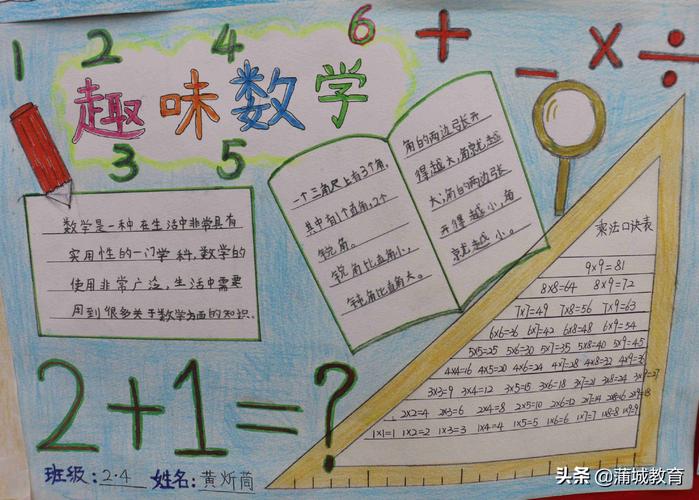 1 2 4 6 + - × ÷
趣味数学
3 5
数学是一种在生活中非常具有
实用性的一门学科,数学的
使用非常广泛,生活中需要
用到很多关于数学方面的知识.
一个三角尺上有3个角,
其中有1个直角,2个
锐角。
锐角比直角小,
钝角比直角大。
角的两边张开
得越大,角就越
大;角的两边张
开得越小,角
就越小。
乘法口诀表
9×9=81
8×8=64 8×9=72
7×7=49 7×8=56 7×9=63
6×6=36 6×7=42 6×8=48 6×9=54
5×5=25 5×6=30 5×7=35 5×8=40 5×9=45
4×4=16 4×5=20 4×6=24 4×7=28 4×8=32 4×9=36
3×3=9 3×4=12 3×5=15 3×6=18 3×7=21 3×8=24 3×9=27
2×2=4 2×3=6 2×4=8 2×5=10 2×6=12 2×7=14 2×8=16 2×9=18
1×1=1 1×2=2 1×3=3 1×4=4 1×5=5 1×6=6 1×7=7 1×8=8 1×9=9
2+1=?
班级:2.4 姓名:黄炘茼
头条 @蒲城教育